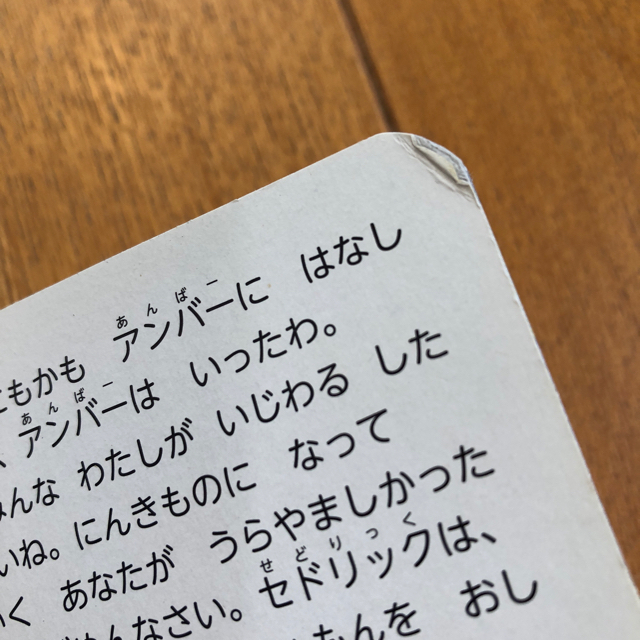 あんばー
もかも アンバーに はなし
あんばー
、アンバーは いったわ。
んな わたしが いじわる した
いね。にんきものに なって
く あなたが うらやましかった
せどりっく
んなさい。セドリックは、
もんを おし